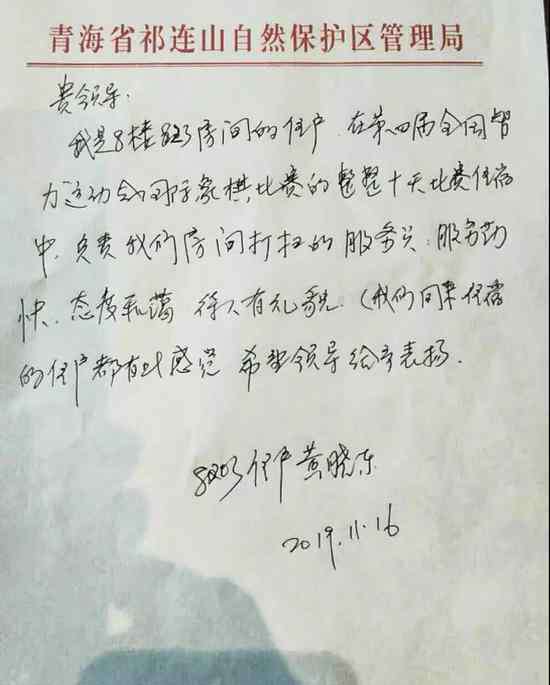 青海省祁连山自然保护区管理局
贵领导:
我是8楼 房间的住户 在第四届全国智
力运动会国际象棋比赛的整整十天比赛住宿
中,负责我们房间打扫的服务员:服务勤
快、态度和蔼 待人有礼貌.(我们同来住宿
的住户都有此感觉 希望领导给予表扬.
住户黄晓东
2019.11.16